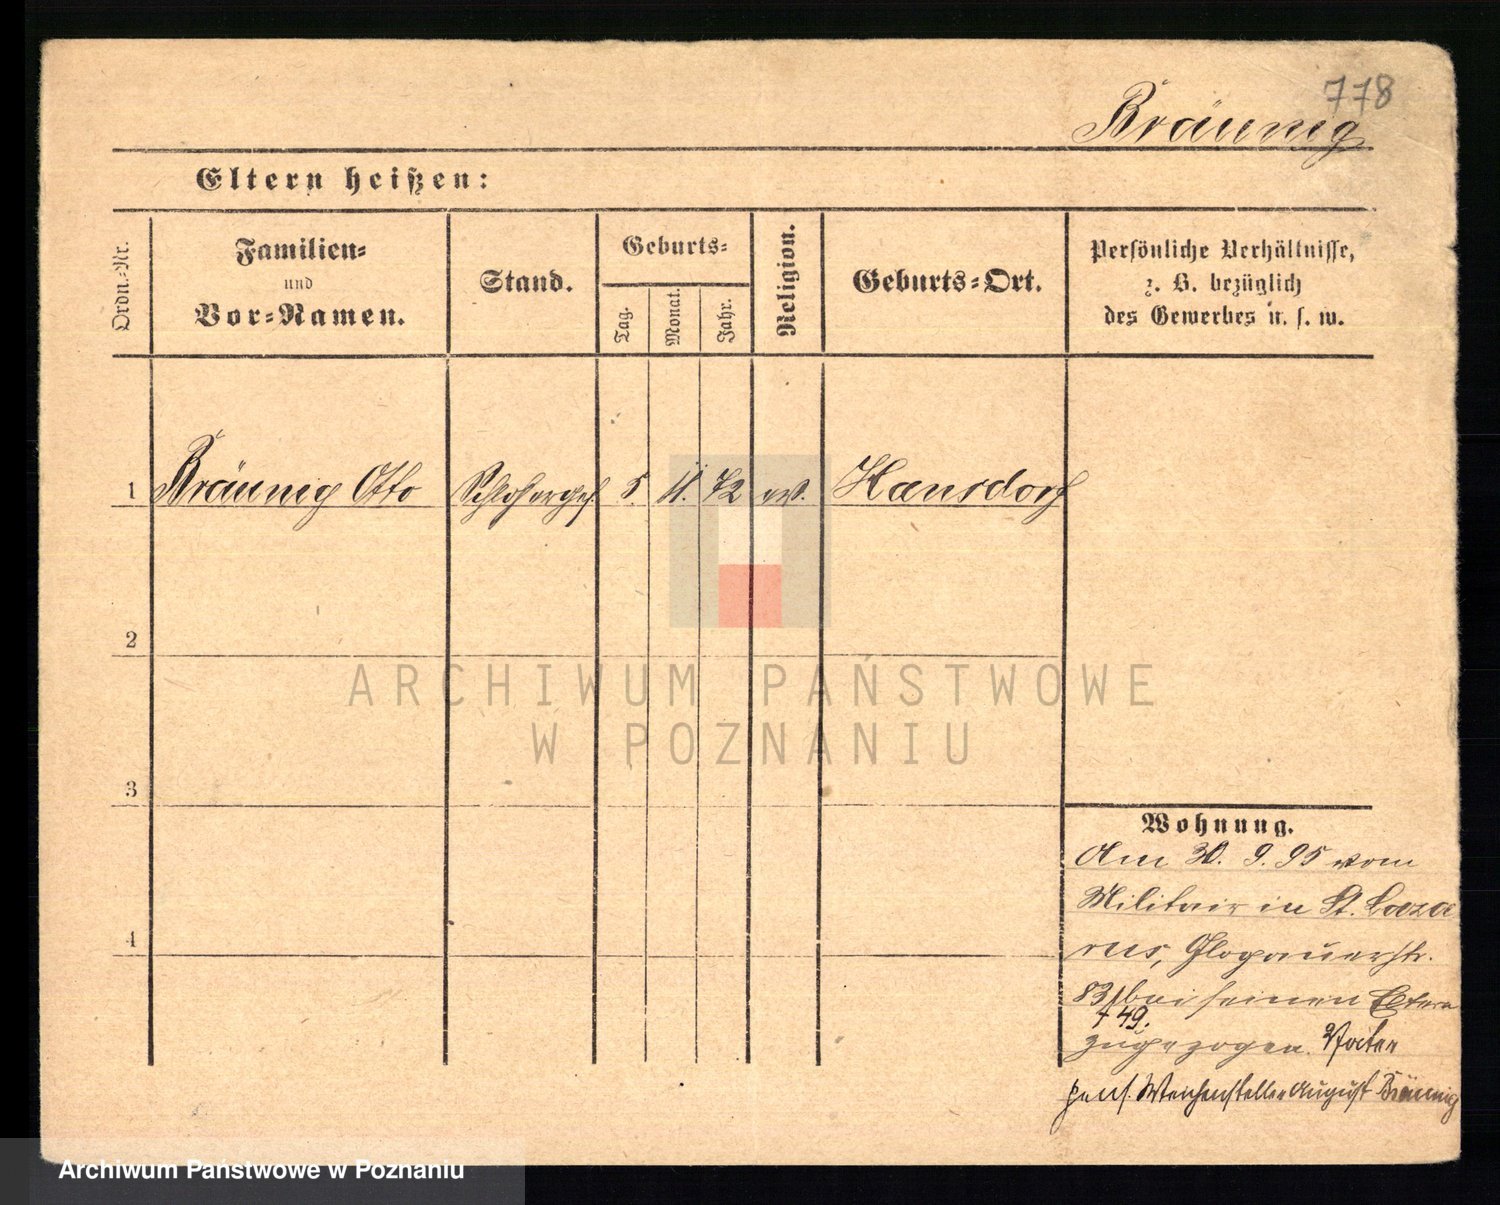 778
Bräunig
Eltern heißen:
Ordn.-Nr.
Familien-
und
Vor-Namen.
Stand.
Geburts-
Tag.
Monat.
Jahr.
Religion.
Geburts-Ort.
Persönliche Verhältnisse,
z. B. bezüglich
des Gewerbes u. s. w.
1 Bräunig Otto Schlosserges. 5. 11. 72 ev. Hansdorf
2
3
4
Wohnung.
Am 30. 9. 95 vom
Militair in St. Laza
rus, Glogauerstr.
83 bei seinen Eltern
+ 49.
zugezogen. Vater
pens. Weichensteller August Bräunig
ARCHIWUM PAŃSTWOWE
W POZNANIU
Archiwum Państwowe w Poznaniu